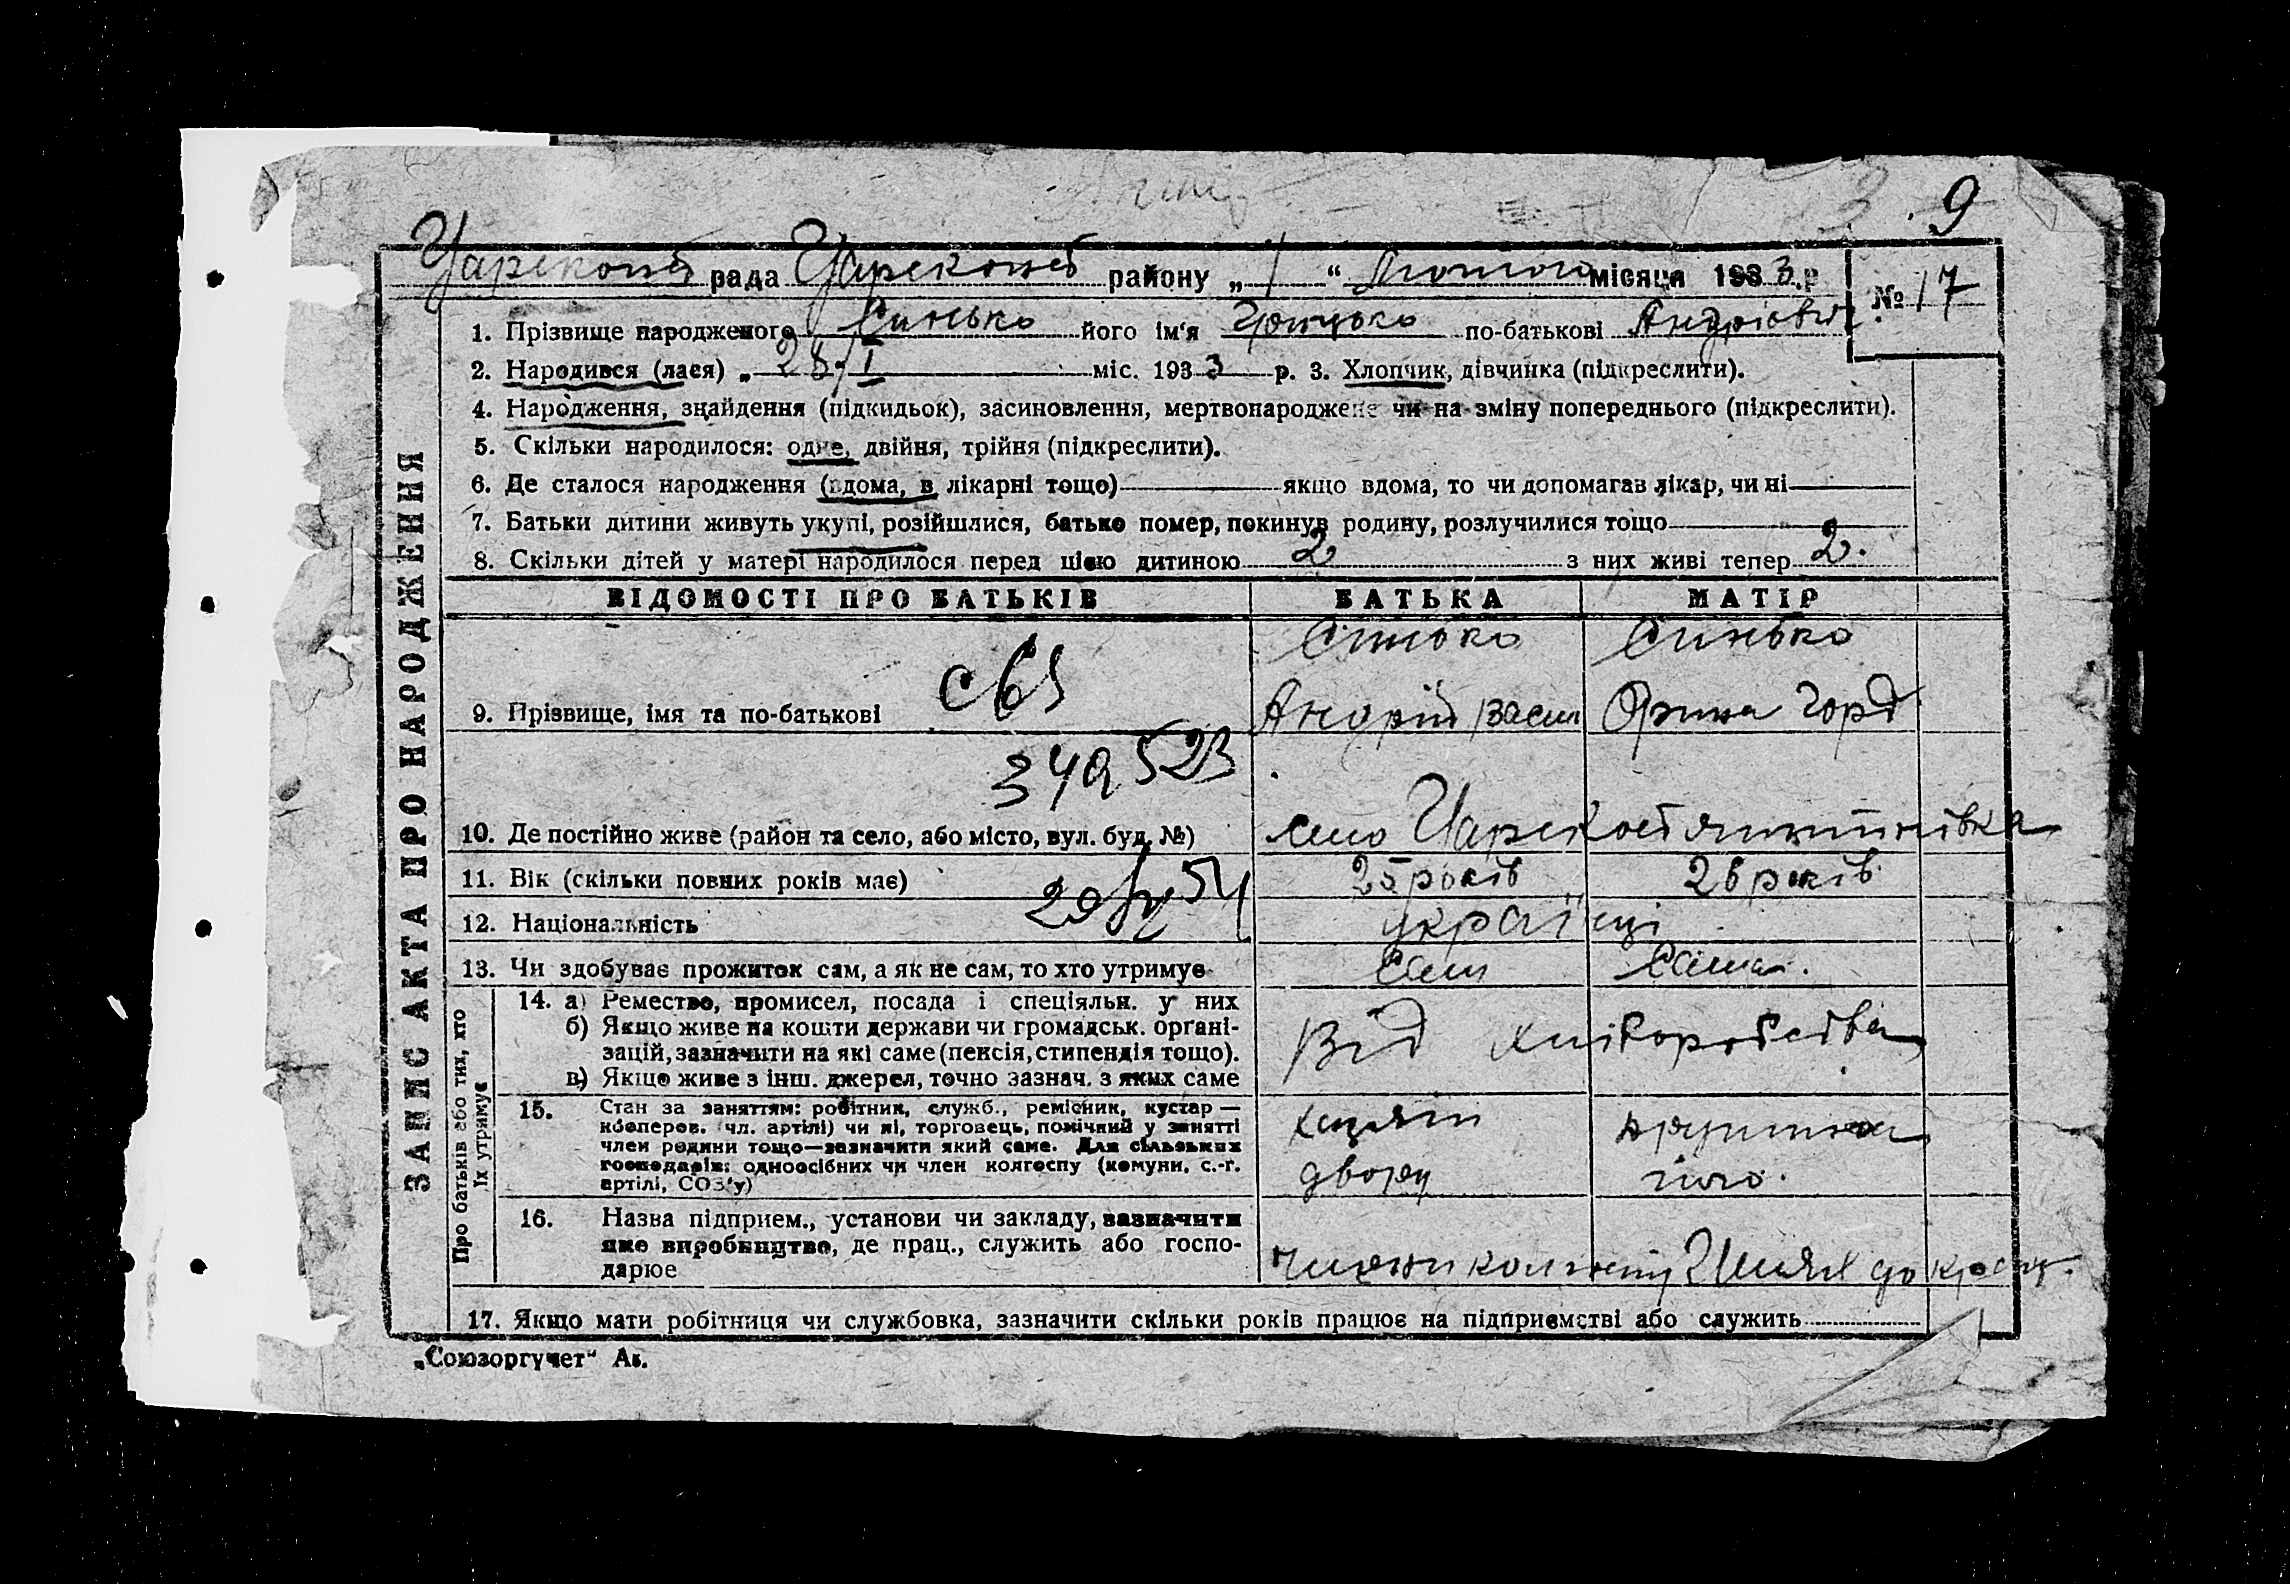 9
Царекост рада Царекост району „ 1 “ Лютого місяця 1933 р
№ 17
1. Прізвище народженого Синько його ім‘я Грицько по-батькові Андрієвич
2. Народився (лася) „ 28/I міс. 1933 р. 3. Хлопчик, дівчинка (підкреслити).
4. Народження, знайдення (підкидьок), засиновлення, мертвонароджене чи на зміну попереднього (підкреслити).
5. Скільки народилося: одне, двійня, трійня (підкреслити).
6. Де сталося народження (вдома, в лікарні тощо) якщо вдома, то чи допомагав лікар, чи ні
7. Батьки дитини живуть укупі, розійшлися, батько помер, покинув родину, розлучилися тощо
8. Скільки дітей у матері народилося перед цією дитиною 2 з них живі тепер 2.
ЗАПИС АКТА ПРО НАРОДЖЕННЯ
ВІДОМОСТІ ПРО БАТЬКІВ БАТЬКА МАТІР
Синько Синько
9. Прізвище, імя та по-батькові Андрій Васил Орина Горд
10. Де постійно живе (район та село, або місто, вул. буд. №) село
11. Вік (скільки повних років має) 25 років 26 років
12. Національність українці
13. Чи здобуває прожиток сам, а як не сам, то хто утримує Сам Сама.
Про батьків або тих, хто їх утримує
14. а) Ремество, промисел, посада і спеціяльн. у них
б) Якщо живе на кошти держави чи громадськ. органі-
зацій, зазначити на які саме (пенсія, стипендія тощо). Від хліборобства
в) Якщо живе з інш. джерел, точно зазнач. з яких саме
15. Стан за заняттям: робітник, служб., ремісник, кустар —
кооперов. (чл. артілі) чи ні, торговець, помічний у занятті
член родини тощо—зазначити який саме. Для сільських
господарів: одноосібних чи член колгоспу (комуни, с.-г.
артілі, СОЗ‘у)
хазяїн дружина
двору його.
16. Назва підприєм., установи чи закладу, зазначити
яке виробництво, де прац., служить або госпо-
дарює
17. Якщо мати робітниця чи службовка, зазначити скільки років працює на підприємстві або служить
„Союзоргучет“